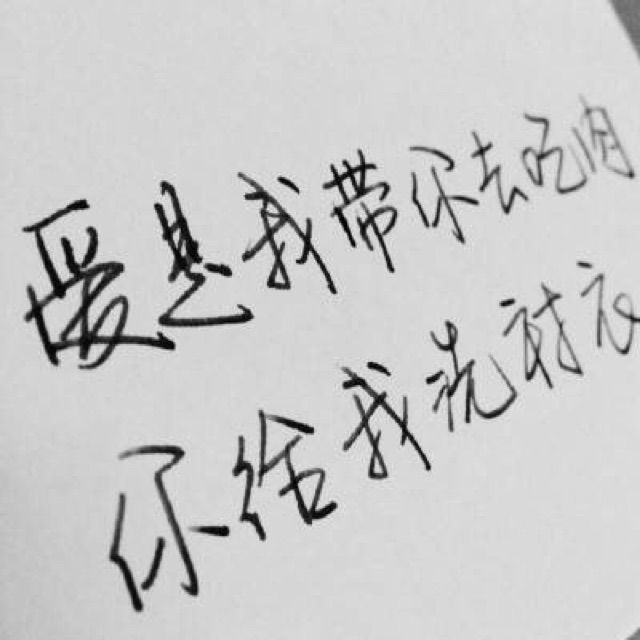 爱是我带你去吃肉
你给我洗衬衣